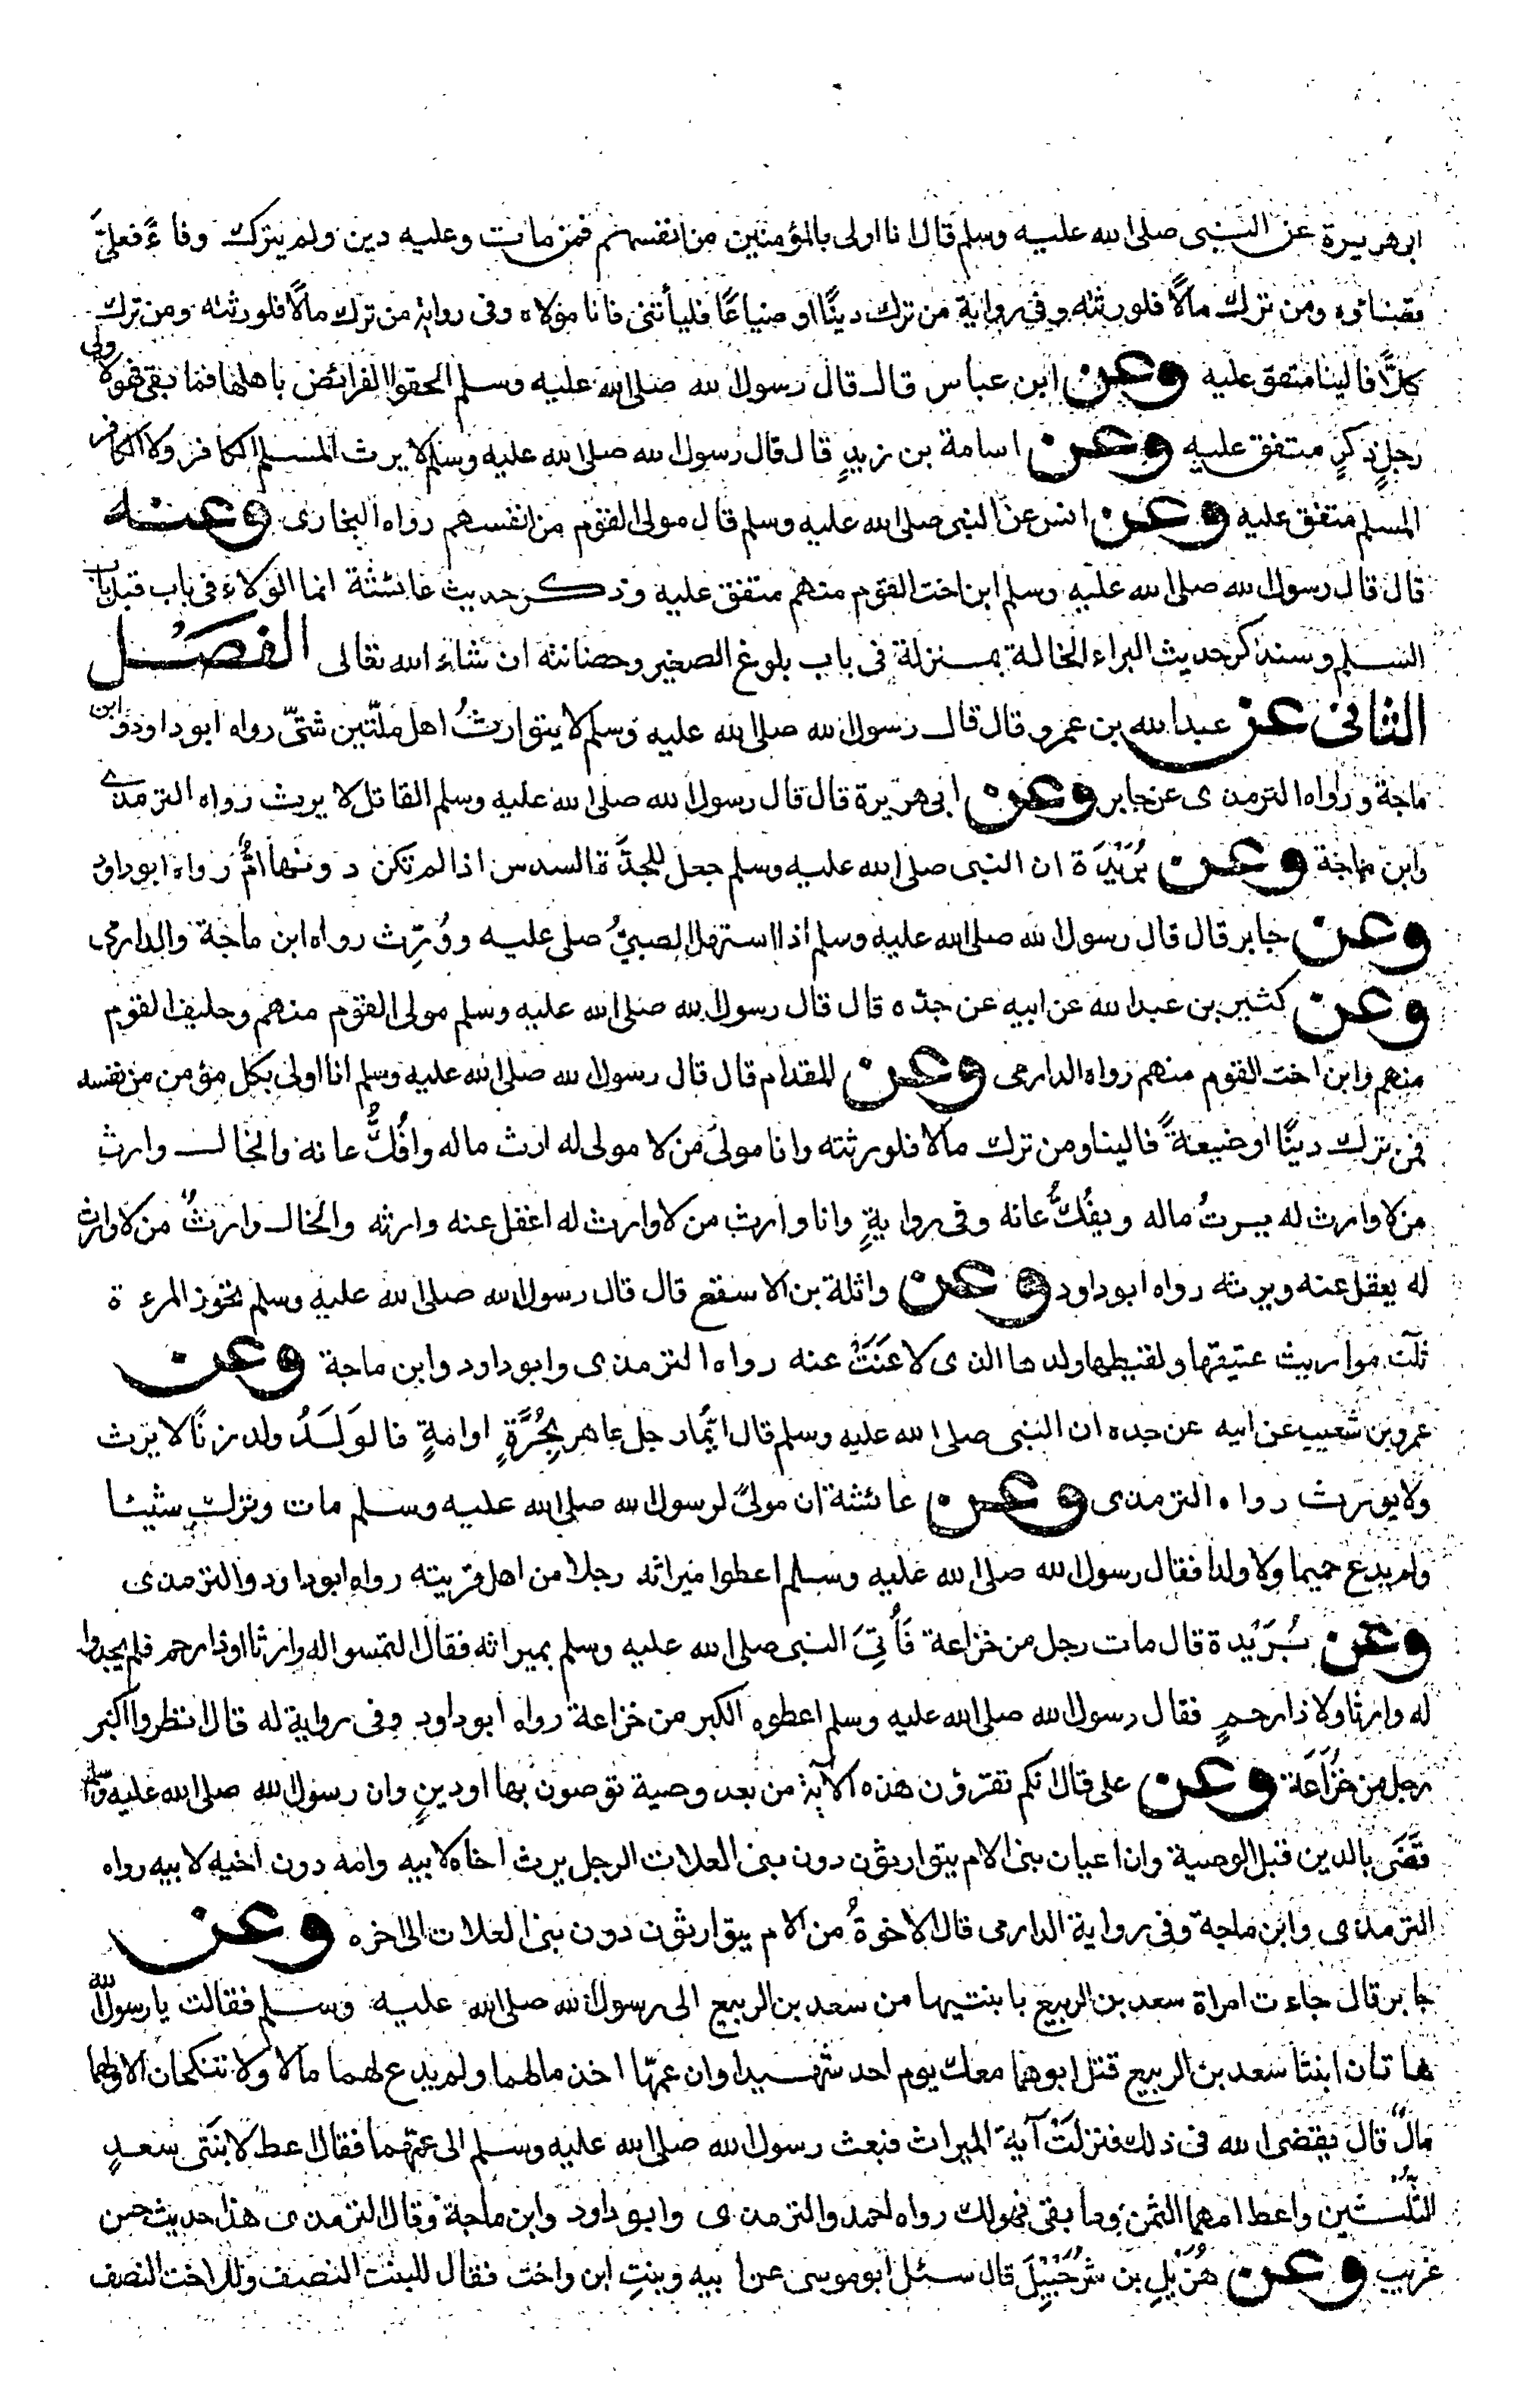 ابى هريرة عن النبى صلى الله عليه وسلم قال انا اولى بالمؤمنين من انفسهم فمن مات وعليه دين ولم يترك وفاءً فعلىَّ
قضاؤه ومن ترك مالًا فلورثته وفى رواية من ترك دينًا او ضياعًا فليأتنى فانا مولاه وفى رواية من ترك مالًا فلورثته ومن ترك
كلًّا فالينا متفق عليه وعن ابن عباس قال قال رسول الله صلى الله عليه وسلم الحقوا الفرائض باهلها فما بقى فهو لاولى
رجلٍ ذكرٍ متفق عليه وعن اسامة بن زيدٍ قال قال رسول الله صلى الله عليه وسلم لا يرث المسلم الكافر ولا الكافر
المسلم متفق عليه وعن انس عن النبى صلى الله عليه وسلم قال مولى القوم من انفسهم رواه البخارى وعنه
قال قال رسول الله صلى الله عليه وسلم ابن اخت القوم منهم متفق عليه وذكر حديث عائشة انما الولاء فى باب قبل باب
السلم وسنذكر حديث البراء الخالة بمنزلة فى باب بلوغ الصغير وحضانته ان شاء الله تعالى الفصل
الثانى عن عبد الله بن عمرو قال قال رسول الله صلى الله عليه وسلم لا يتوارثُ اهل ملّتين شتّى رواه ابو داود وابن
ماجة ورواه الترمذى عن جابر وعن ابى هريرة قال قال رسول الله صلى الله عليه وسلم القاتل لا يرث رواه الترمذى
وابن ماجة وعن بُرَيْدَة ان النبى صلى الله عليه وسلم جعل للجدَّة السدس اذا لم تكن دونها امٌّ رواه ابو داود
وعن جابر قال قال رسول الله صلى الله عليه وسلم اذا استهل الصبىُّ صلى عليه ووُرِّث رواه ابن ماجة والدارمى
وعن كثير بن عبد الله عن ابيه عن جدّه قال قال رسول الله صلى الله عليه وسلم مولى القوم منهم وحليف القوم
منهم وابن اخت القوم منهم رواه الدارمى وعن المقدام قال قال رسول الله صلى الله عليه وسلم انا اولى بكل مؤمن من نفسه
فمن ترك دينًا او ضيعةً فالينا ومن ترك مالا فلورثته وانا مولى من لا مولى له ارث ماله وافُكُّ عانه والخال وارث
من لا وارث له يرثُ ماله ويفُكُّ عانه وفى روايةٍ وانا وارث من لا وارث له اعقل عنه وارثه والخال وارثٌ من لا وارث
له يعقل عنه ويرثه رواه ابو داود وعن واثلة بن الاسقع قال قال رسول الله صلى الله عليه وسلم تحوز المرءة
ثلٰث مواريث عتيقها ولقيطها ولدها الذى لاعَنَتْ عنه رواه الترمذى وابو داود وابن ماجة وعن
عمرو بن شعيب عن ابيه عن جده ان النبى صلى الله عليه وسلم قال ايُّما رجل عاهر بحُرَّةٍ او امةٍ فالوَلَدُ ولد زنًا لا يرث
ولا يورث رواه الترمذى وعن عائشة ان مولىً لرسول الله صلى الله عليه وسلم مات وترك شيئا
ولم يدع حميما ولا ولدا فقال رسول الله صلى الله عليه وسلم اعطوا ميراثه رجلا من اهل قريته رواه ابو داود والترمذى
وعن بُرَيْدة قال مات رجل من خزاعة فَأُتِىَ النبى صلى الله عليه وسلم بميراثه فقال التمسوا له وارثا او ذا رحم فلم يجدوا
له وارثا ولا ذا رحمٍ فقال رسول الله صلى الله عليه وسلم اعطوه الكبر من خزاعة رواه ابو داود وفى رواية له قال انظروا اكبر
رجل من خُزَاعَة وعن على قال انكم تقرؤن هذه الآية من بعد وصية توصون بها او دينٍ وان رسول الله صلى الله عليه وسلم
قَضَى بالدين قبل الوصية وان اعيان بنى الام يتوارثون دون بنى العلات الرجل يرث اخاه لابيه وامه دون اخيه لابيه رواه
الترمذى وابن ماجة وفى رواية الدارمى قال الاخوةُ من الام يتوارثون دون بنى العلات الى اخره وعن
جابر قال جاءت امراة سعد بن الربيع بابنتيها من سعد بن الربيع الى رسول الله صلى الله عليه وسلم فقالت يا رسول الله
هاتان ابنتا سعد بن الربيع قتل ابوهما معك يوم احد شهيدا وان عمهما اخذ مالهما ولم يدع لهما مالا ولا تنكحان الا ولهما
مالٌ قال يقضى الله فى ذلك فنزلَتْ آية الميراث فبعث رسول الله صلى الله عليه وسلم الى عمّهما فقال اعط لابنَتَى سعدٍ
الثُلُثَين واعط امهما الثمن وما بقى فهو لك رواه احمد والترمذى وابو داود وابن ماجة وقال الترمذى هذا حديث حسن
غريب وعن هُزَيْلِ بن شُرَحْبِيْلَ قال سئل ابو موسى عن ابيه وبنتِ ابن واخت فقال للبنت النصف وللاخت النصف